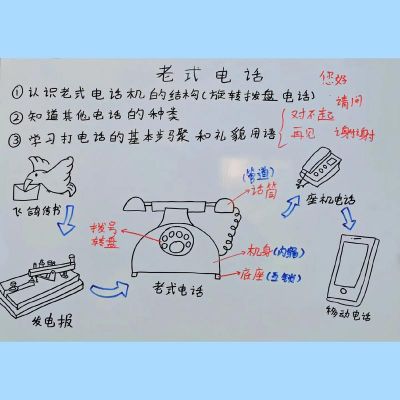 老式电话
①认识老式电话机的结构(旋转拨盘电话)
②知道其他电话的种类
③学习打电话的基本步骤和礼貌用语
您好
请问
对不起
再见 谢谢
飞鸽传书
发电报
拨号
转盘
话筒
机身
底座
老式电话
座机电话
移动电话